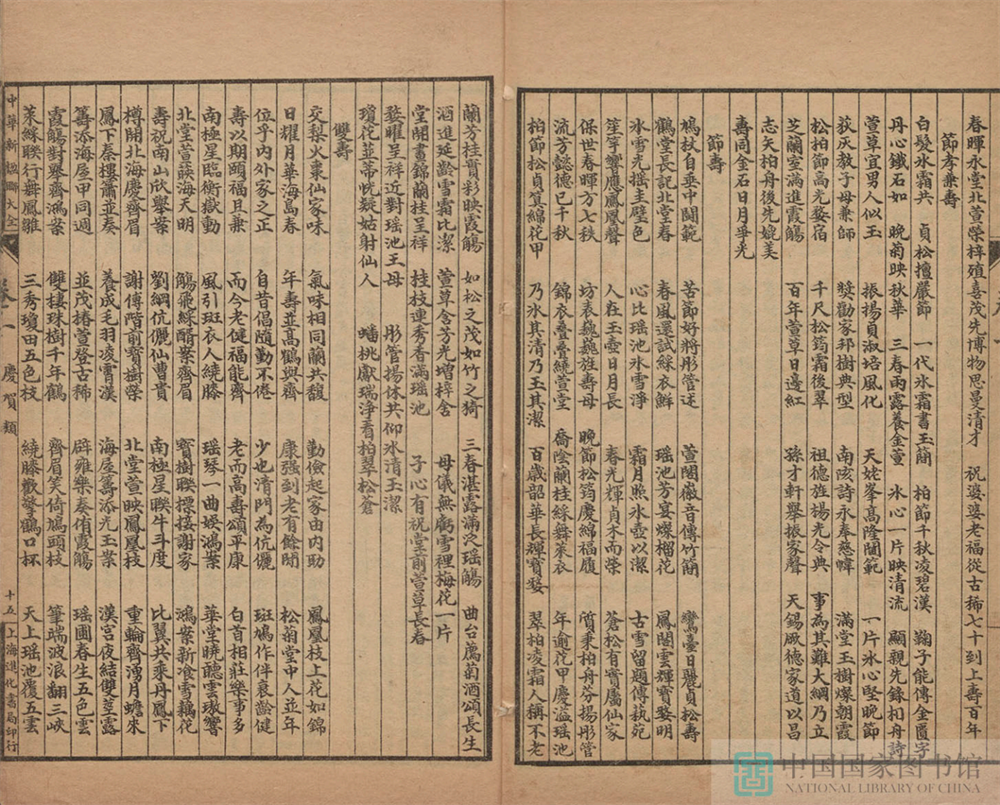 春暉永堂北萱榮梓殖喜茂先博物思曼清才　祝婆婆老福從古稀七十到上壽百年
節孝兼壽
白髮冰霜共　貞松擅嚴節　一代冰霜書玉簡　柏節千秋凌碧漢　鞠子能傳金匱字
丹心鐵石如　晚菊映秋華　三春雨露養金萱　冰心一片映清流　顯親先錄柏舟詩
萱草宜男人似玉　振揚貞淑培風化　天姥峯高隆閫範　一片冰心堅晚節
荻灰教子母兼師　獎勸家邦樹典型　南陔詩永奉慈幃　滿堂玉樹燦朝霞
松柏節高光婺宿　千尺松筠霜後翠　祖德旌楊光令典　事為其難大綱乃立
芝蘭室滿進霞觴　百年萱草日邊紅　孫才軒舉振家聲　天錫厥德家道以昌
志矢柏舟後先媲美
壽同金石日月爭光
節壽
鳩杖自垂中閫範　苦節好將彤管迓　萱閨徽音傳竹簡　鸞臺日麗貞松壽
鶴堂長記北堂春　春風還試綵衣鮮　瑤池芳宴燦榴花　鳳閣雲輝寶婺明
冰雪光搖圭璧色　心比瑤池冰雪淨　霜月照冰壺以潔　古雪留題傳萟苑
笙竽響應鳳凰聲　人在玉壺日月長　春光輝貞木而榮　蒼松有實屬仙家
保世春暉方七秩　坊表巍巍旌壽母　晚節松筠慶綿福履　質秉柏舟芬揚彤管
流芳懿德已千秋　錦衣疊疊繞萱堂　喬陰蘭桂綵舞萊衣　年逾花甲慶溢瑤池
柏節松貞算綿花甲　乃冰其清乃玉其潔　百歲韶華長輝寶婺　翠柏凌霜人稱不老
蘭芳桂實彩映霞觴　如松之茂如竹之猗　三春湛露滿泛瑤觴　曲台薦菊酒頌長生
酒進延齡雪霜比潔　萱草含芳光增梓舍　母儀無虧雪裡梅花一片
堂開晝錦蘭桂呈祥　桂枝連秀香滿瑤池　子心有祝堂前萱草長春
婺曜呈祥近對瑤池王母　彤管揚休共仰冰清玉潔
瓊花並蒂恍疑姑射仙人　蟠桃獻瑞淨看柏翠松蒼
雙壽
交梨火棗仙家味　氣味相同蘭共馥　勤儉起家由內助　鳳凰枝上花如錦
日耀月華海島春　年壽並高鶴與齊　康强到老有餘閒　松菊堂中人並年
位乎內外家之正　自昔倡隨勤不倦　少也清門為伉儷　斑鳩作伴衰齡健
壽以期頤福且兼　而今老健福能齊　老而高壽頌平康　白首相莊樂事多
南極星臨衡嶽動　風引斑衣人繞膝　瑶琴一曲娱鴻案　華堂曉聽雲璈響
北堂萱䕃海天明　觴飛綵酳案齊眉　寶樹聯標接謝家　鴻案新飡雪藕花
壽祝南山欣舉案　劉綱伉儷仙曹貴　南極星聯牛斗度　比翼共乘丹鳳下
樽開北海慶齊眉　謝傅階前寶樹榮　北堂萱映鳳凰枝　重輪齊湧月蟾來
鳳下秦樓簫並奏　養成毛羽凌霄漢　海屋籌添光玉案　漢宮夜結雙莖露
籌添海屋甲同週　並茂椿萱登古稀　辟雍樂奏侑霞觴　瑶圃春生五色雲
霞觴對舉齊鴻案　雙棲珠樹千年鶴　齊眉笑倚鳩頭枝　筆端波浪翻三峽
萊綵聯行舞鳳雛　三秀瓊田五色枝　繞膝歡擎鶴口杯　天上瑶池覆五雲
中華新楹聯大全　卷一　慶賀類　十五　上海進化書局印行
中国国家图书馆
NATIONAL LIBRARY OF CHINA